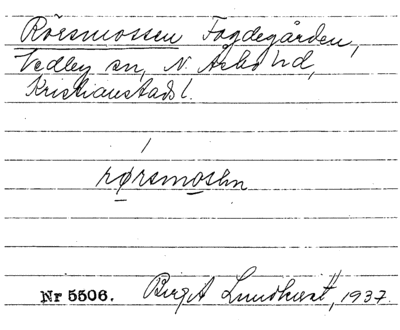 Rörsmossen Fogdegården,
Vedby sn, N. Åsbo hd,
Kristianstads l.
rørsmosən
Nr 5506. Birgit Lundkvist, 1937.